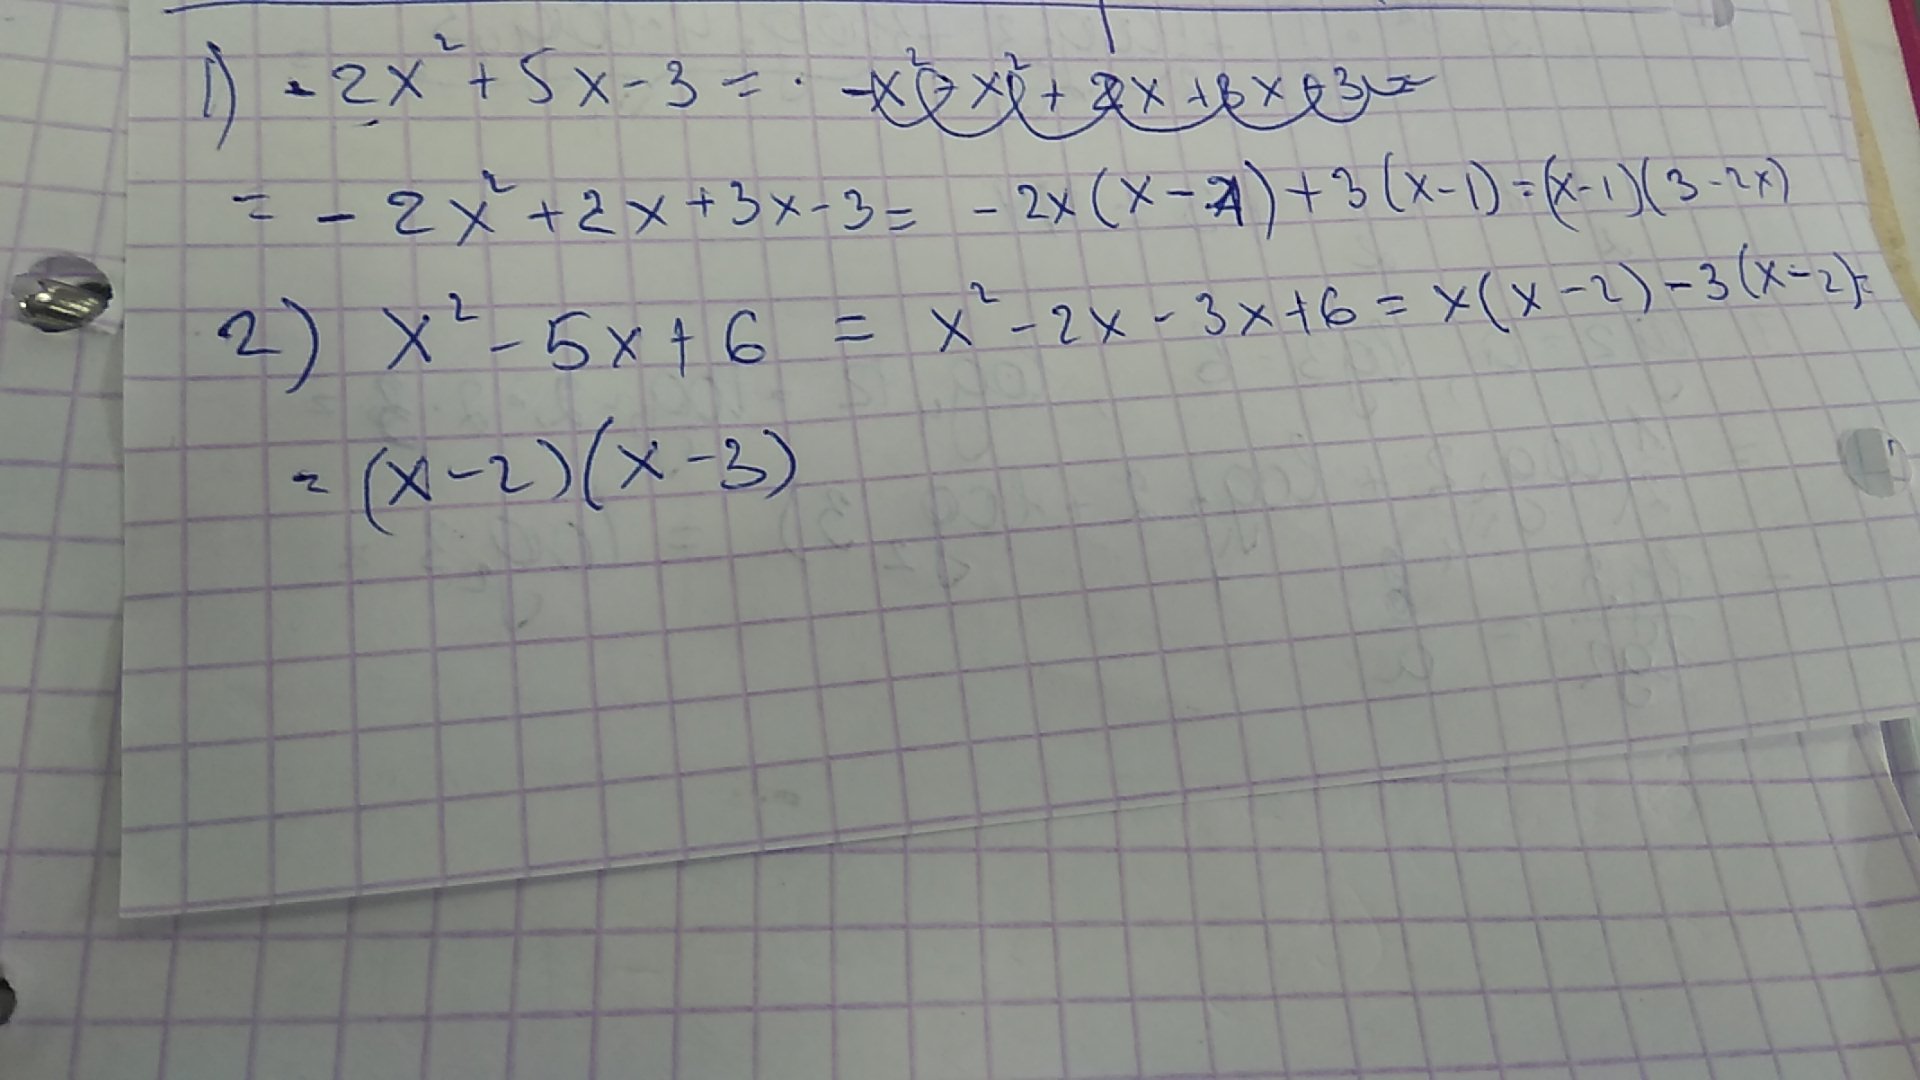 1) -2x² + 5x - 3 = -x² - x² + 2x + 3x - 3 =
= - 2x² + 2x + 3x - 3 = - 2x (x - 1) + 3 (x - 1) = (x - 1)(3 - 2x)
2) x² - 5x + 6 = x² - 2x - 3x + 6 = x(x - 2) - 3(x - 2) =
= (x - 2)(x - 3)